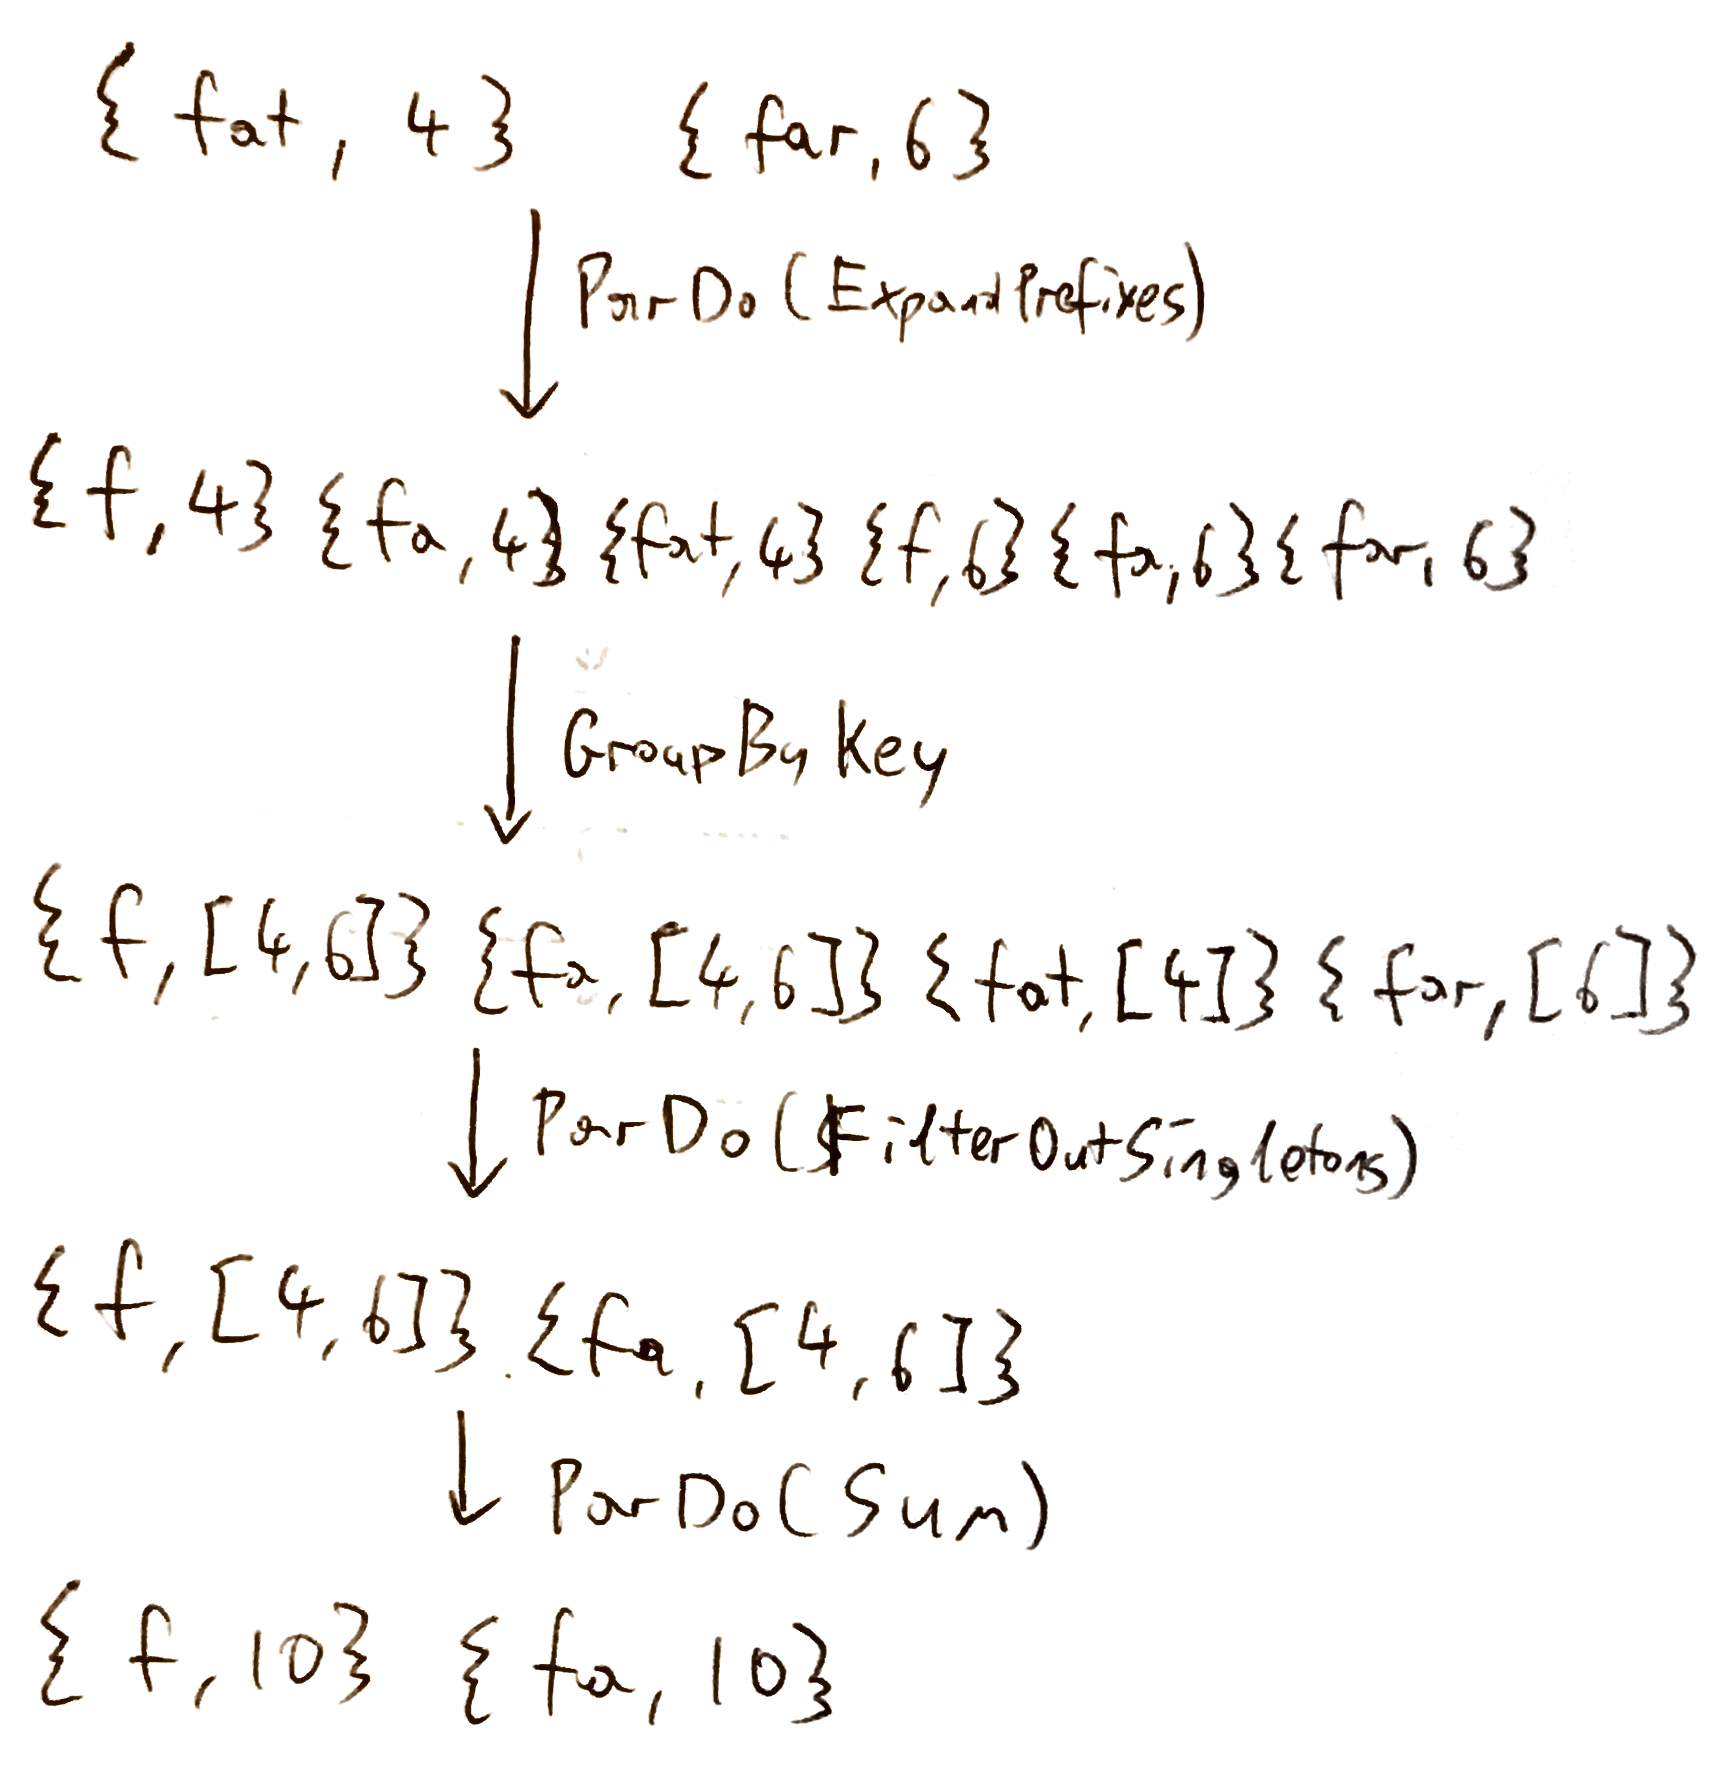 { fat, 4 } { far, 6 }
ParDo (ExpandPrefixes)
{ f, 4 } { fa, 4 } { fat, 4 } { f, 6 } { fa, 6 } { far, 6 }
GroupByKey
{ f, [4, 6] } { fa, [4, 6] } { fat, [4] } { far, [6] }
ParDo (FilterOutSingletons)
{ f, [4, 6] } { fa, [4, 6] }
ParDo (Sum)
{ f, 10 } { fa, 10 }